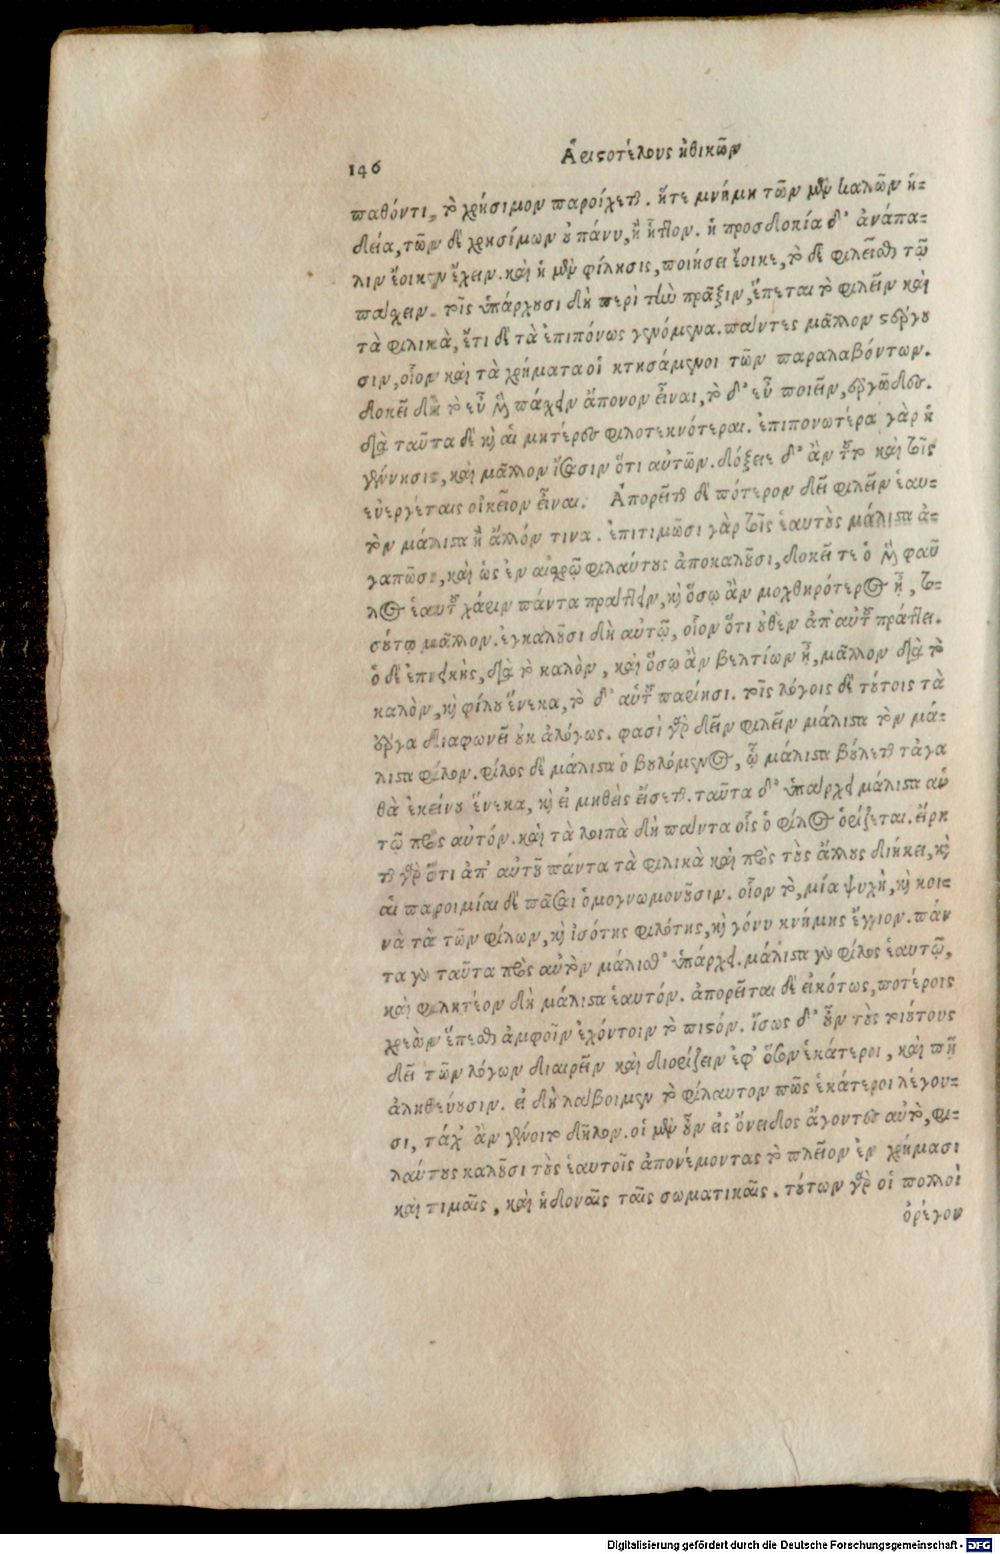 146
Ἀριστοτέλους ἠθικῶν
παθόντι, τὸ χρήσιμον παροίχεται. ἥτε μνήμη τῶν μὲν καλῶν ἡ-
δεῖα, τῶν δὲ χρησίμων οὐ πάνυ, ἢ ἧττον. ἡ προσδοκία δ' ἀνάπα-
λιν ἔοικεν ἔχειν. καὶ ἡ μὲν φίλησις, ποιήσει ἔοικε, τὸ δὲ φιλεῖσθαι τῷ
πάσχειν. τοῖς ὑπάρχουσι δὴ περὶ τὴν πρᾶξιν, ἕπεται τὸ φιλεῖν καὶ
τὰ φιλικὰ, ἔτι δὲ τὰ ἐπιπόνως γενόμενα. πάντες μᾶλλον στέργου
σιν, οἷον καὶ τὰ χρήματα οἱ κτησάμενοι τῶν παραλαβόντων.
δοκεῖ δὴ τὸ εὖ μὲν πάχειν ἄπονον εἶναι, τὸ δ' εὖ ποιεῖν, ἐργῶδες.
διὰ ταῦτα δὲ καὶ αἱ μητέρες φιλοτεκνότεραι. ἐπιπονωτέρα γὰρ ἡ
γέννησις, καὶ μᾶλλον ἴσασιν ὅτι αὐτῶν. δόξειε δ' ἂν τοῦτο καὶ τοῖς
εὐεργέταις οἰκεῖον εἶναι. Ἀπορεῖται δὲ πότερον δεῖ φιλεῖν ἑαυ-
τὸν μάλιστα ἢ ἄλλόν τινα. ἐπιτιμῶσι γὰρ τοῖς ἑαυτοὺς μάλιστα ἀ-
γαπῶσι, καὶ ὡς ἐν αἰσχρῷ φιλαύτους ἀποκαλοῦσι, δοκεῖ τε ὁ μὲν φαῦ
λος ἑαυτοῦ χάριν πάντα πράττειν, καὶ ὅσῳ ἂν μοχθηρότερος ᾖ, το-
σούτῳ μᾶλλον. ἐγκαλοῦσι δὴ αὐτῷ, οἷον ὅτι οὐθὲν ἀπ' αὑτοῦ πράττει.
ὁ δὲ ἐπιεικὴς, διὰ τὸ καλὸν, καὶ ὅσῳ ἂν βελτίων ᾖ, μᾶλλον διὰ τὸ
καλὸν, καὶ φίλου ἕνεκα, τὸ δ' αὑτοῦ παρίησι. τοῖς λόγοις δὲ τούτοις τὰ
ἔργα διαφωνεῖ οὐκ ἀλόγως. φασὶ γὰρ δεῖν φιλεῖν μάλιστα τὸν μά-
λιστα φίλον. φίλος δὲ μάλιστα ὁ βουλόμενος, ᾧ μάλιστα βούλεται τἀγα
θὰ ἐκείνου ἕνεκα, καὶ εἰ μηθεὶς εἴσεται. ταῦτα δ' ὑπάρχει μάλιστα αὐ
τῷ πρὸς αὑτόν. καὶ τὰ λοιπὰ δὴ πάντα οἷς ὁ φίλος ὁρίζεται. εἴρη
ται γὰρ ὅτι ἀπ' αὐτοῦ πάντα τὰ φιλικὰ καὶ πρὸς τοὺς ἄλλους διήκει, καὶ
αἱ παροιμίαι δὲ πᾶσαι ὁμογνωμονοῦσιν. οἷον τὸ, μία ψυχὴ, καὶ κοι-
νὰ τὰ τῶν φίλων, καὶ ἰσότης φιλότης, καὶ γόνυ κνήμης ἔγγιον. πάν
τα γὰρ ταῦτα πρὸς αὑτὸν μάλισθ' ὑπάρχει. μάλιστα γὰρ φίλος ἑαυτῷ,
καὶ φιλητέον δὴ μάλιστα ἑαυτόν. ἀπορεῖται δὲ εἰκότως, ποτέροις
χρεὼν ἕπεσθαι ἀμφοῖν ἐχόντοιν τὸ πιστόν. ἴσως δ' οὖν τοὺς τοιούτους
δεῖ τῶν λόγων διαιρεῖν καὶ διορίζειν ἐφ' ὅσον ἑκάτεροι, καὶ πῇ
ἀληθεύουσιν. εἰ δὴ λάβοιμεν τὸ φίλαυτον πῶς ἑκάτεροι λέγου-
σι, τάχ' ἂν γένοιτο δῆλον. οἱ μὲν οὖν εἰς ὄνειδος ἄγοντες αὐτὸ, φι-
λαύτους καλοῦσι τοὺς ἑαυτοῖς ἀπονέμοντας τὸ πλεῖον ἐν χρήμασι
καὶ τιμαῖς, καὶ ἡδοναῖς ταῖς σωματικαῖς. τούτων γὰρ οἱ πολλοὶ
ὀρέγον
Digitalisierung gefördert durch die Deutsche Forschungsgemeinschaft - DFG